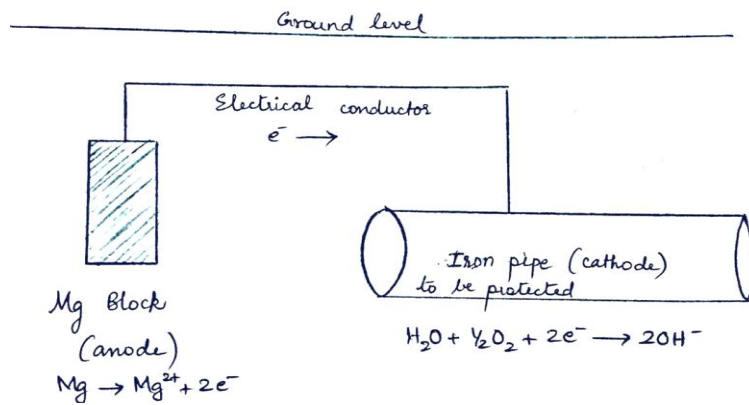 Ground level
Electrical conductor
e⁻ →
Iron pipe (cathode)
to be protected
Mg Block
(anode)
Mg → Mg²⁺ + 2e⁻
H₂O + ½O₂ + 2e⁻ → 2OH⁻